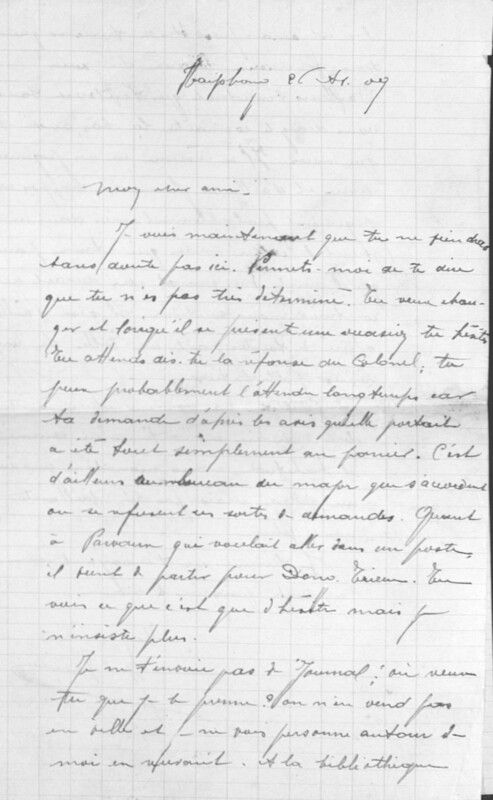 Haïphong 26 At. 09
Mon cher ami.
Je vois maintenant que tu ne viendras
sans doute pas ici. Permets-moi de te dire
que tu n'es pas très déterminé. Tu veux chan-
ger et lorsqu'il se présent une occasion tu hésites
Tu attends dis-tu la réponse du Colonel; tu
peux probablement l'attendre longtemps car
ta demande d'après les avis qu'elle portait
a été tout simplement au panier. C'est
d'ailleurs au bureau du major que s'accordent
ou se refusent ces sortes de demandes. Quant
à qui voulait aller dans un poste,
il vient de partir pour Dong. Trieu. Tu
vois ce que c'est que d'hésiter mais je
n'insiste plus.
Je ne t'envoie pas de Journal; où veux
tu que je le prenne? on n'en vend pas
en ville et je ne vois personne autour de
moi en recevoir. A la bibliothèque